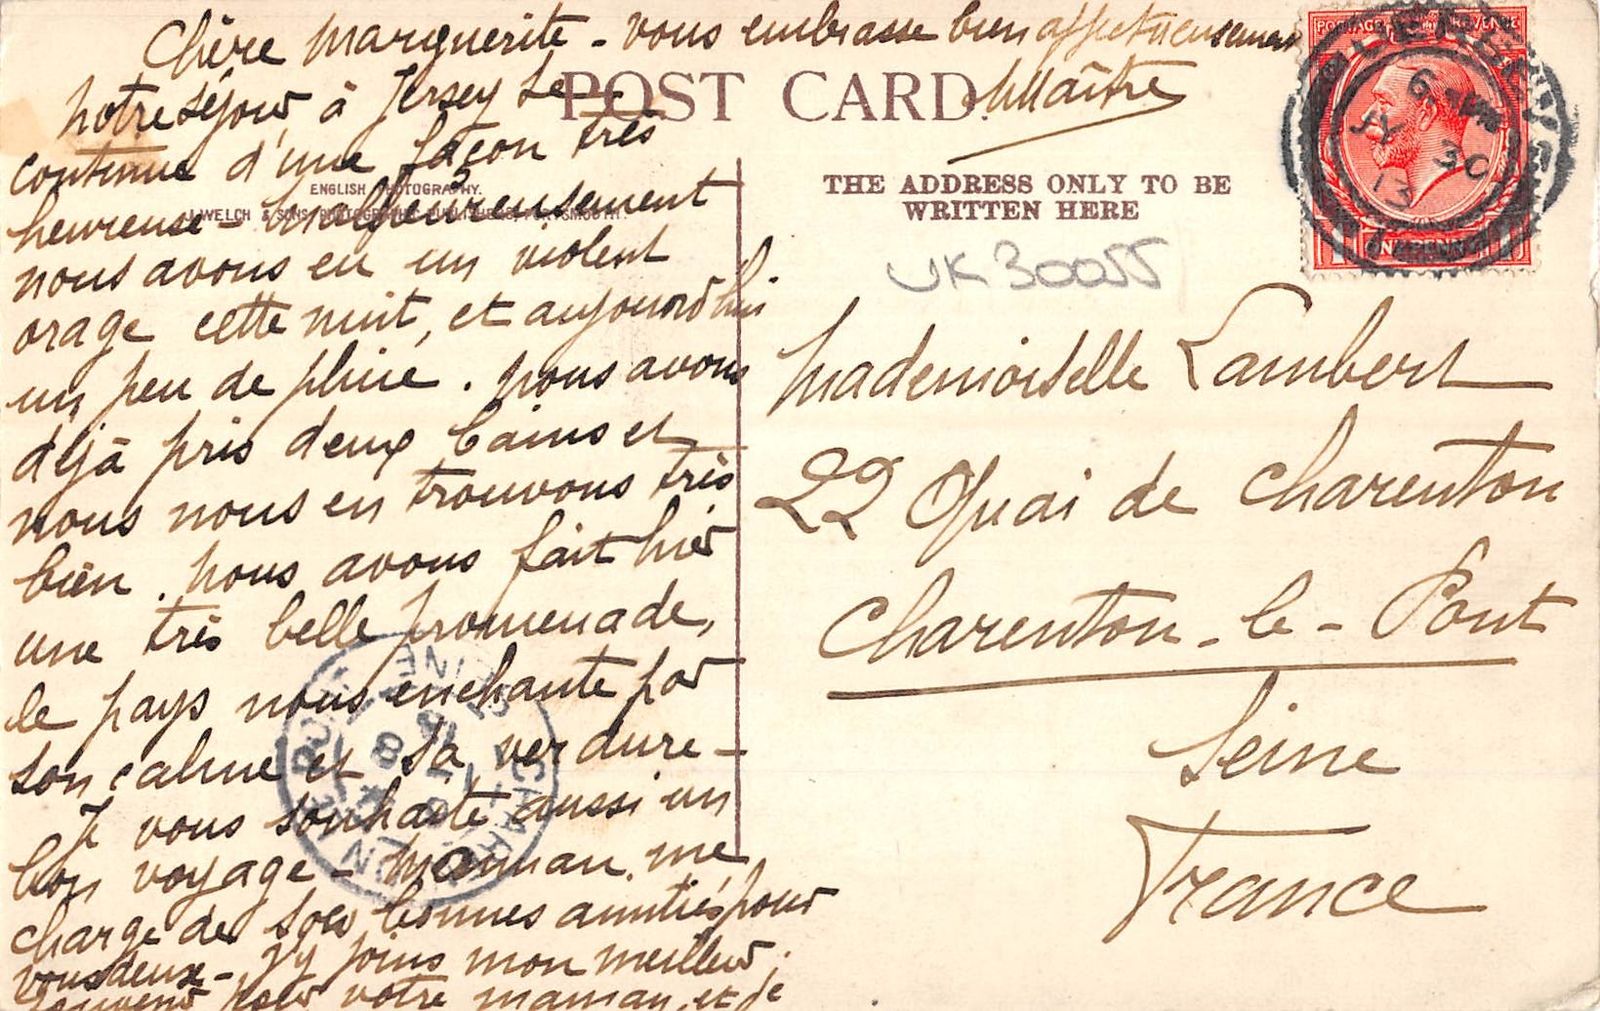 Chère Marguerite - vous embrasse bien affectueusement
Maître
Notre séjour à Jersey se
continue d'une façon très
heureuse - malheureusement
nous avons eu un violent
orage cette nuit, et aujourd'hui
un peu de pluie. Nous avons
déjà pris deux bains et
nous nous en trouvons très
bien. Nous avons fait hier
une très belle promenade,
le pays nous enchante par
son calme et sa verdure -
Je vous souhaite aussi un
bon voyage - Maman me
charge de ses bonnes amitiés pour
vous deux - J'y joins mon meilleur
souvenir pour votre maman, et je
POST CARD.
ENGLISH PHOTOGRAPHY.
J. WELCH & SONS, PHOTOGRAPHIC PUBLISHERS, PORTSMOUTH.
THE ADDRESS ONLY TO BE
WRITTEN HERE
UK30055
Mademoiselle Lambert
22 Quai de Charenton
Charenton-le-Pont
Seine
France
POSTAGE REVENUE
JERSEY
6
JY 30
13
CHARENTON
SEINE